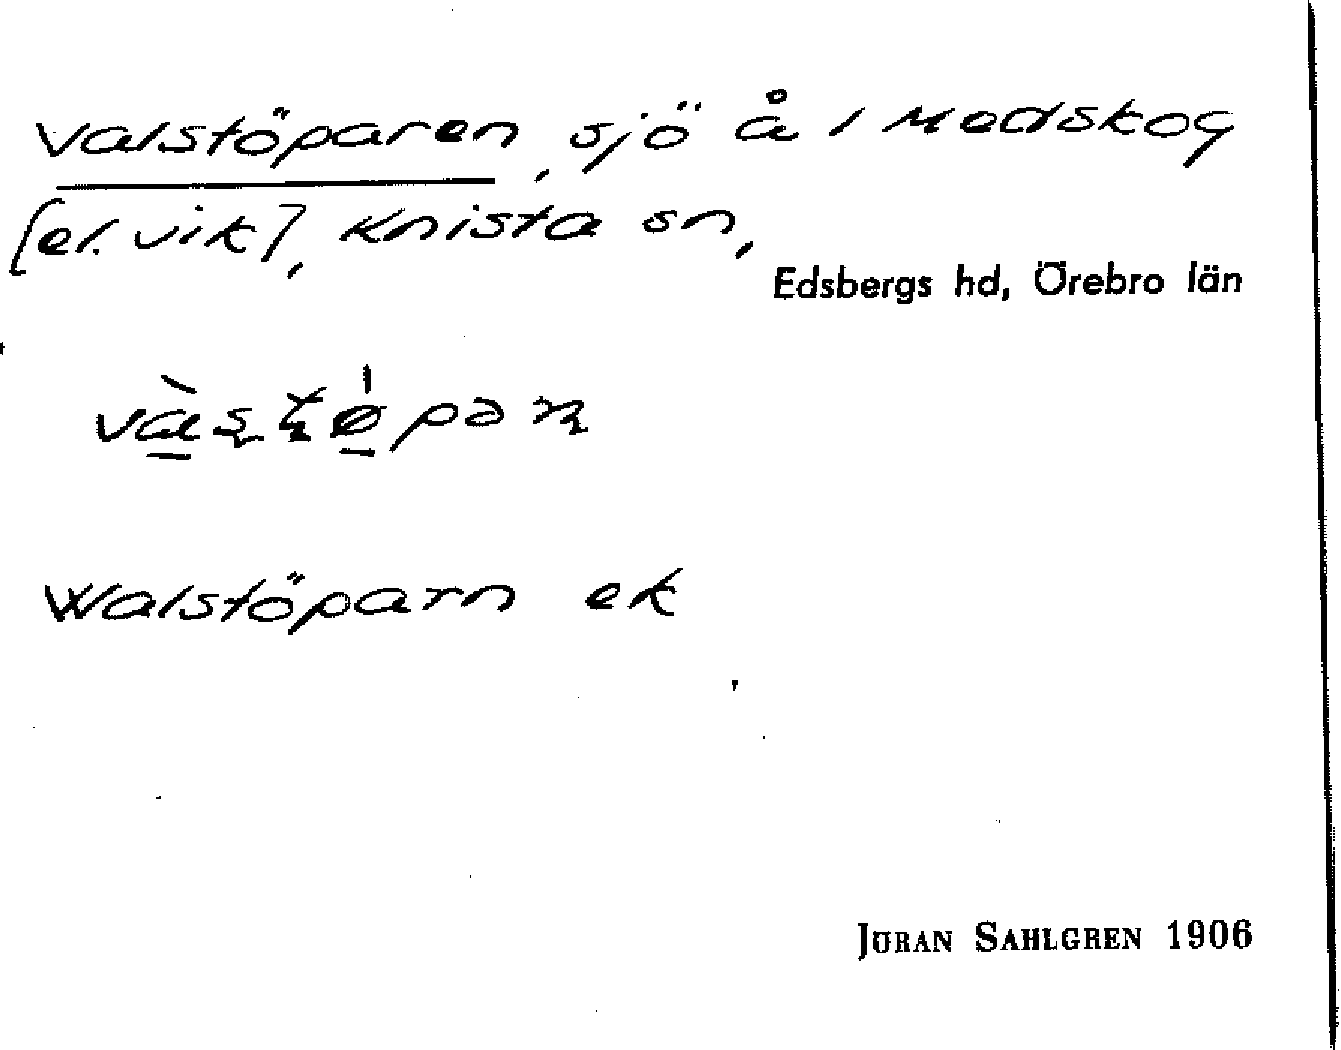 Valstöparen, sjö å 1 Medskog
[el. vik], Knista sn,
Edsbergs hd, Örebro län
Walstöparn ek
JÖRAN SAHLGREN 1906